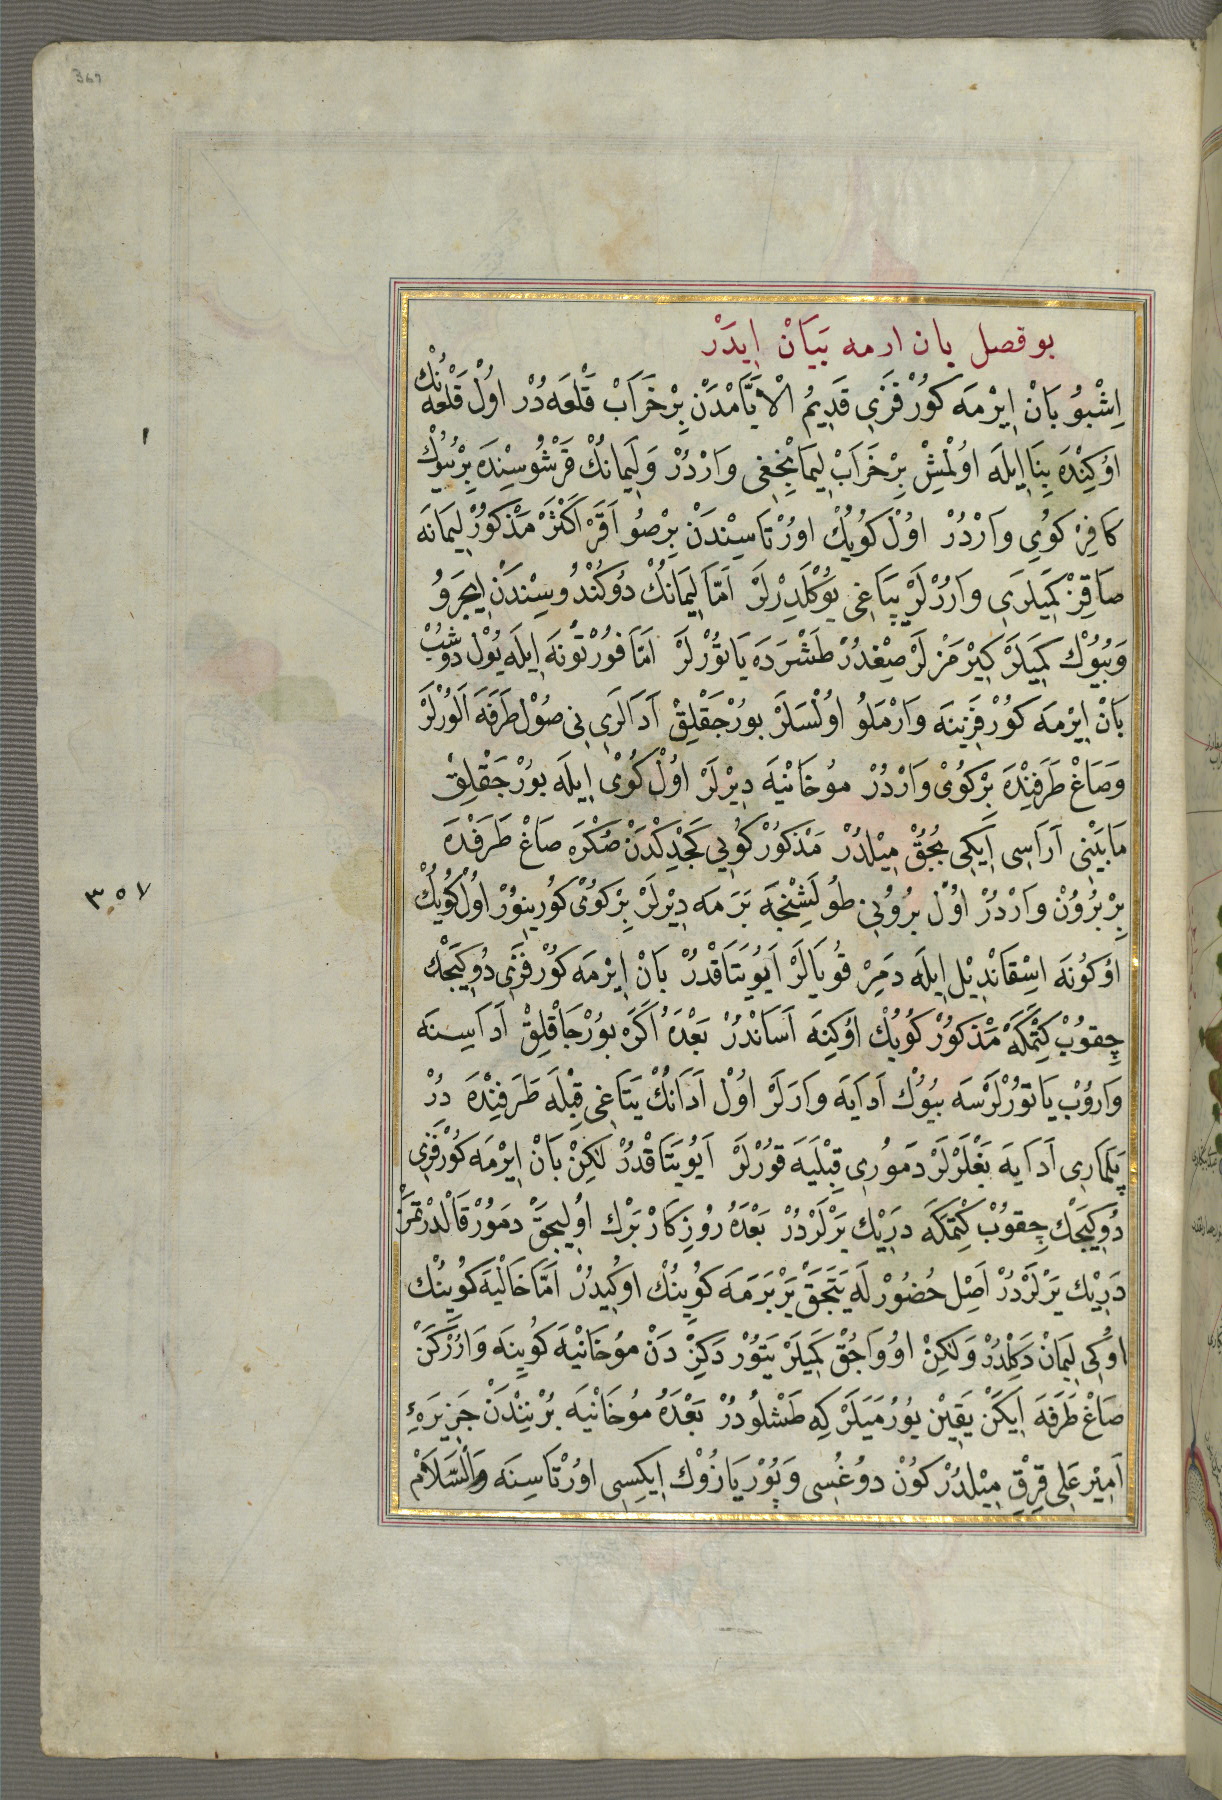 367
بو فصل بان ارمه بَيَانْ اِيدَرْ
اِشْبُو بَانْ اِيْرْمَه كُورْفَزِى قَدِيمُ الْاَيَّامْدَنْ بِرْ خَرَابْ قَلْعَه دُرْ اوُلْ قَلْعَهنُكْ
اوُكِنْدَه بِنَا اِيلَه اوُلْمِشْ بِرْ خَرَابْ لِيمَانْجِغِى وَارْدُرْ وَلِيمَانُكْ قَرْشُوسِنْدَه بِرْ بُيُوكْ
كَافِرْ كُويِى وَارْدُرْ اوُلْ كُويُكْ اوُرْتَاسِنْدَنْ بِرْ صُو اَقَرْ اَكْثَرْ مَذْكُورْ لِيمَانَه
صَاقِزْ كَمِيلَرِى وَارُرْلَرْ پَپَاغِى يُوكْلَدِرْلَرْ اَمَّا لِيمَانُكْ دُوكُنْدُوسِنْدَنْ اِيچَرُو
وَبُيُوكْ كَمِيلَرْ كِيرْمَزْلَرْ صِيغْدُرْ طَشْرَه دَه يَاتُورْلَرْ اَمَّا فُورْتُونَه اِيلَه يُولْ دُوشُبْ
بَانْ اِيْرْمَه كُورْفَزِينَه وَارْمَلُو اوُلْسَلَرْ بُورْجَقْلِقْ اَدَالَرِى نِى صُولْ طَرَفَه اَلُورْلَرْ
وَصَاغْ طَرَفِنْدَه بِرْ كُوىْ وَارْدُرْ مُوخَانِيَه دِيرْلَرْ اوُلْ كُوىْ اِيلَه بُورْجَقْلِقْ
مَابَيْنِى اَرَاسِى اِيكِى بُچُقْ مِيْلدُرْ مَذْكُورْ كُويِى كَچْدِكْدَنْ صُكْرَه صَاغْ طَرَفْدَه
بِرْ بُرُونْ وَارْدُرْ اوُلْ بُرُونِى طُولَشِنْجَه بَرَمَه دِيرْلَرْ بِرْ كُوىْ كُورِينُورْ اوُلْ كُويُكْ
اوُكُونَه اِسْقَانْدِيلْ اِيلَه دَمِرْ قُويَالَرْ اَيُو يَتَاقْدُرْ بَانْ اِيْرْمَه كُورْفَزِى دُوكِيجَكْ
چِقُوبْ كِتْمَكَه مَذْكُورْ كُويُكْ اوُكِنَه اَسَانْدُرْ بَعْدَه اَكَرْ بُورْجَاقْلِقْ اَدَاسِنَه
وَارُوبْ يَاتُورْلَرْسَه بُيُوكْ اَدَايَه وَارَلَرْ اوُلْ اَدَانُكْ يَتَاغِى قِبْلَه طَرَفِنْدَه دُرْ
پَلَمَارِى اَدَايَه بَغْلَرْلَرْ دَمُورِى قِبْلَيَه قُورْلَرْ اَيُو يَتَاقْدُرْ لَكِنْ بَانْ اِيْرْمَه كُورْفَزِى
دُوكِيجَكْ چِقُوبْ كِتْمَكَه دِرِيكْ يَرْلَرْدُرْ بَعْدَه رُوزِكَارْ بَرْكْ اوُلِيجَقْ دَمُورْ قَالْدُرْتْمَزْ
دِرِيكْ يَرْلَرْدُرْ اَصِلْ حُضُورْلَه يَتَجَقْ يَرْ بَرَمَه كُويِنُكْ اوُكِيدُرْ اَمَّا خَالِيَه كُويِنُكْ
اوُكِى لِيمَانْ دَكِلْدُرْ وَلَكِنْ اوُوَاجُقْ كَمِيلَرْ يَتُورْ دَكِزْ دَنْ مُوخَانِيَه كُويِنَه وَارُرْكَنْ
صَاغْ طَرَفَه اِيكَنْ يَقِينْ يُورُمَيَلَرْ كِه طَشْلُودُرْ بَعْدَه مُوخَانِيَه بُرْنِنْدَنْ جَزِيرَهٔ
اَمِيْر عَلِى قِرْقْ مِيْلدُرْ كُونْ دُوغُسِى وَپُورْيَازُوكْ اِيكِسِى اوُرْتَاسِنَه وَالسَّلَامْ
١
٣٥٧